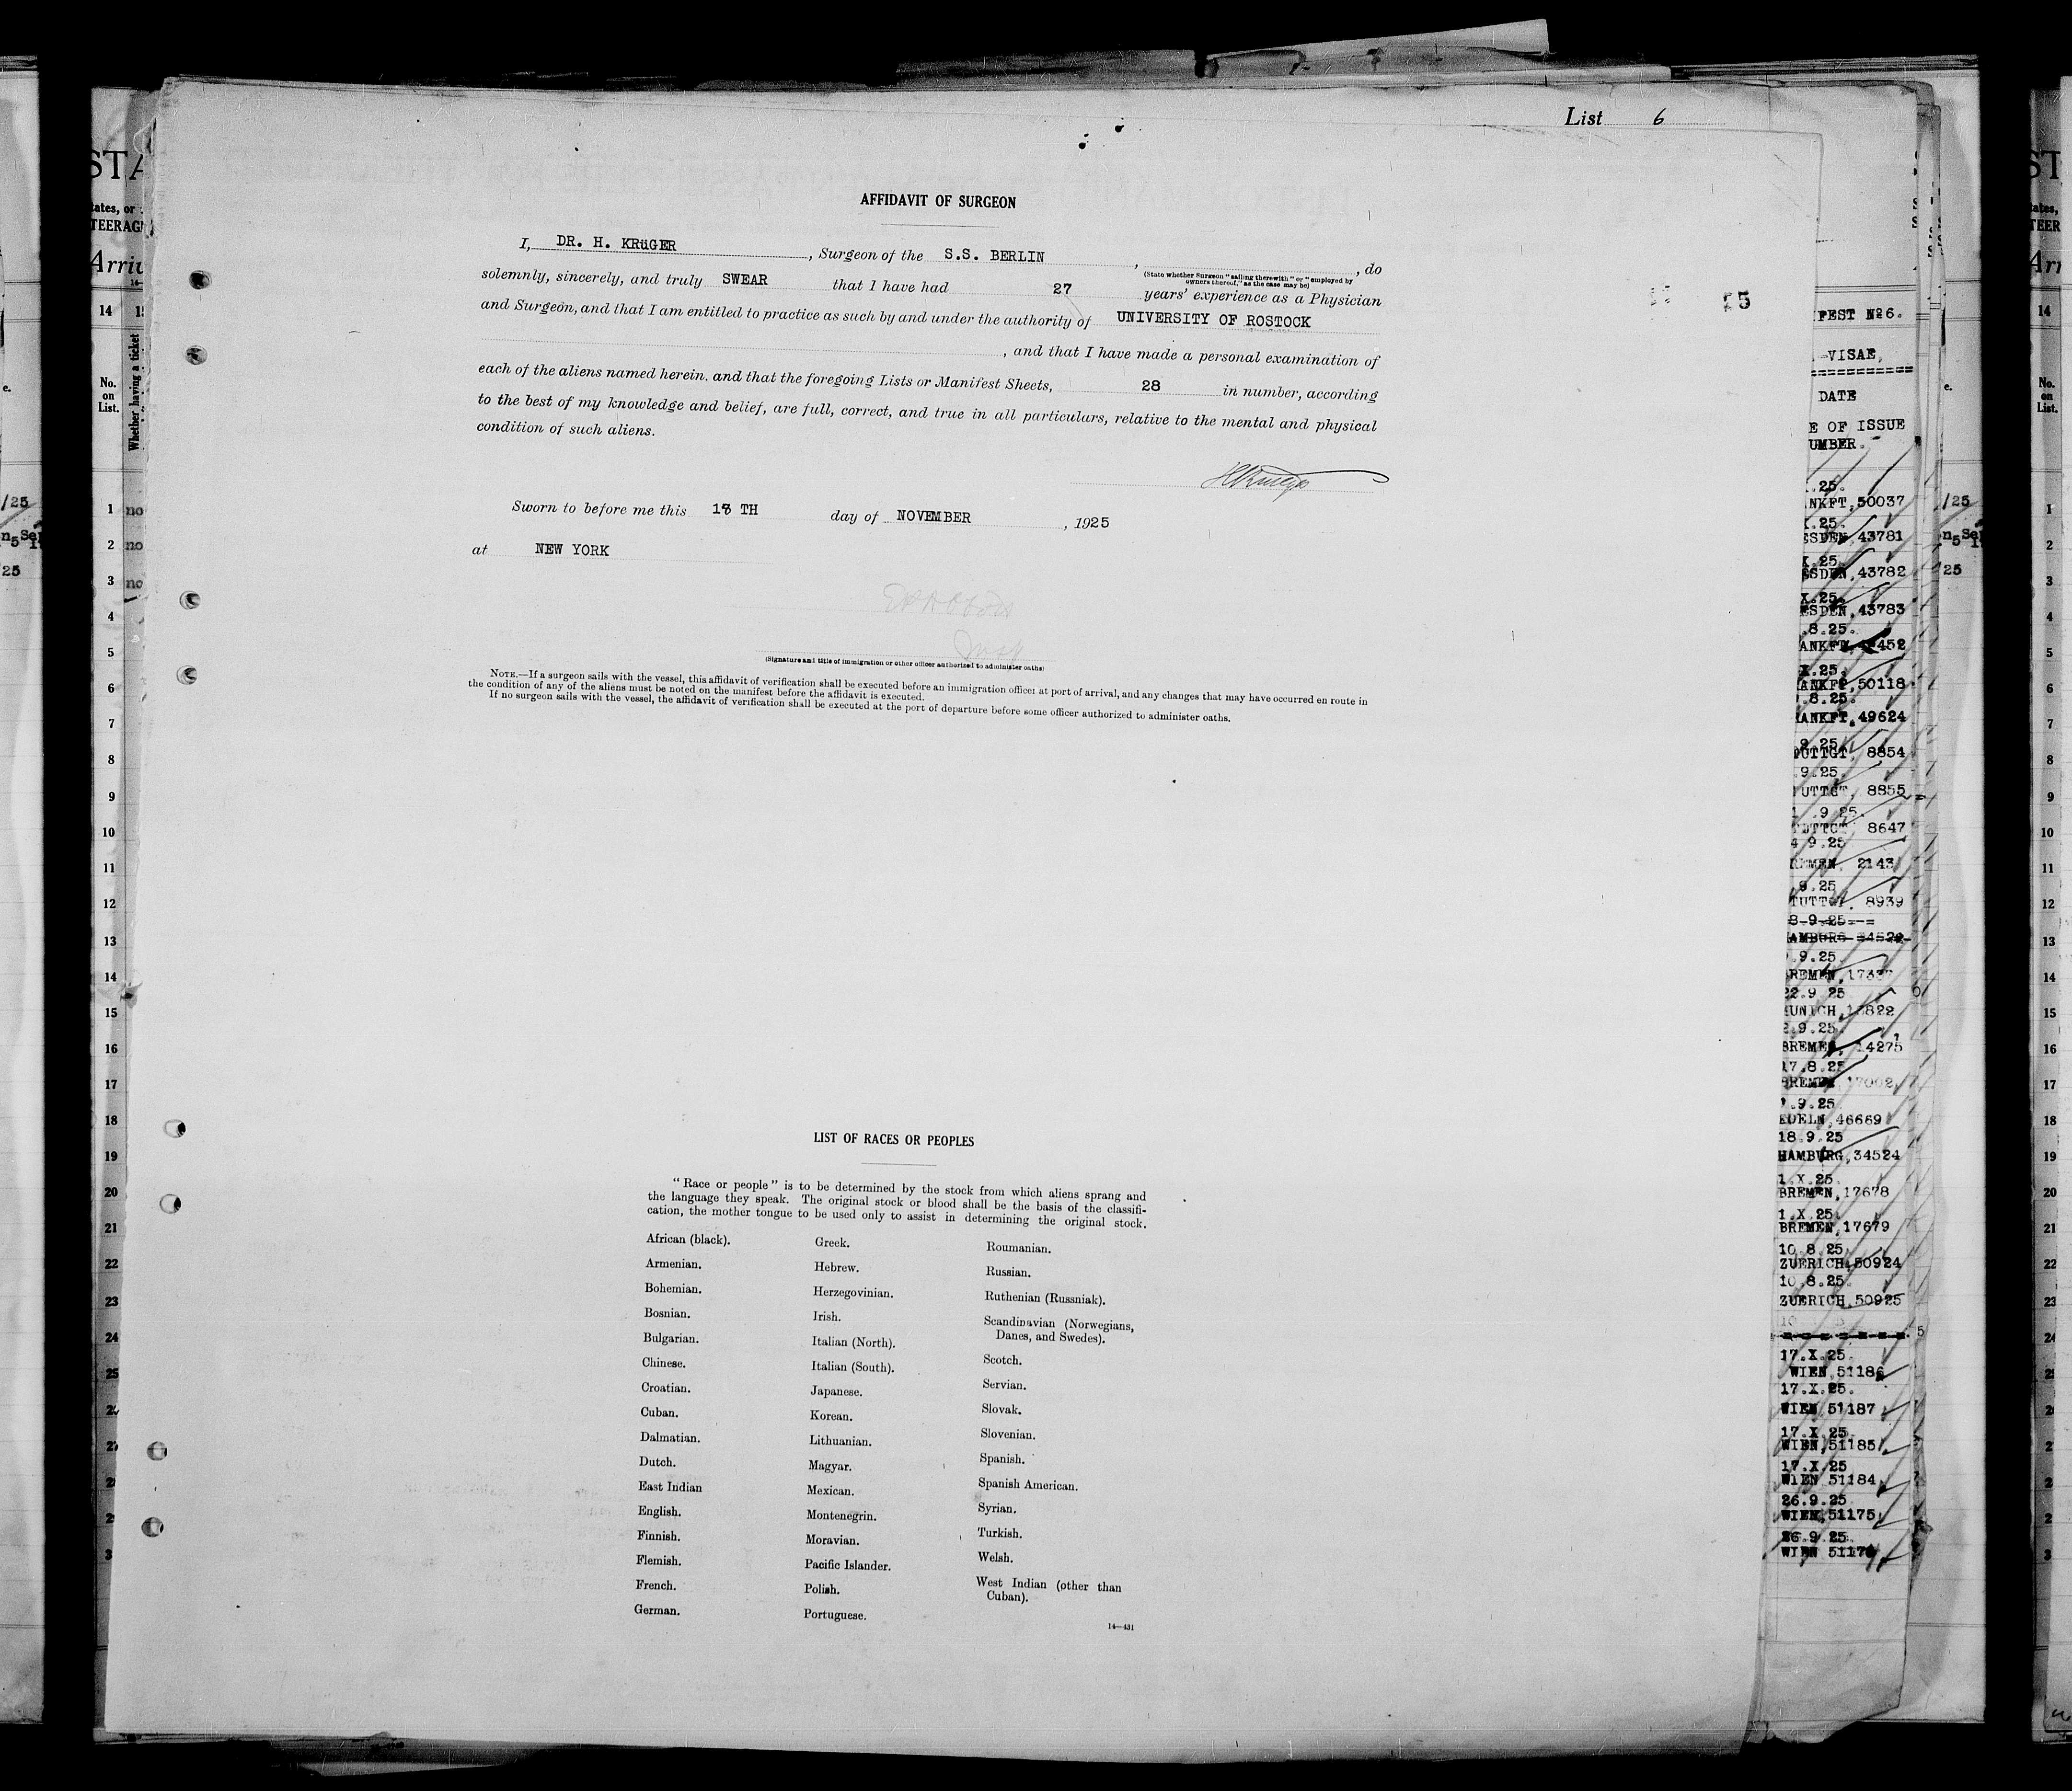 List 6
AFFIDAVIT OF SURGEON
I, DR. H. KRüGER, Surgeon of the S.S. BERLIN, , do
(State whether Surgeon "sailing therewith" or "employed by
owners thereof," as the case may be)
solemnly, sincerely, and truly SWEAR that I have had 27 years' experience as a Physician
and Surgeon, and that I am entitled to practice as such by and under the authority of UNIVERSITY OF ROSTOCK
, and that I have made a personal examination of
each of the aliens named herein. and that the foregoing Lists or Manifest Sheets, 28 in number, according
to the best of my knowledge and belief, are full, correct, and true in all particulars, relative to the mental and physical
condition of such aliens.
Sworn to before me this TH day of NOVEMBER, 1925
at NEW YORK
(Signature and title of immigration or other officer authorized to administer oaths)
NOTE.—If a surgeon sails with the vessel, this affidavit of verification shall be executed before an immigration officer at port of arrival, and any changes that may have occurred en route in
the condition of any of the aliens must be noted on the manifest before the affidavit is executed.
If no surgeon sails with the vessel, the affidavit of verification shall be executed at the port of departure before some officer authorized to administer oaths.
LIST OF RACES OR PEOPLES
"Race or people" is to be determined by the stock from which aliens sprang and
the language they speak. The original stock or blood shall be the basis of the classifi-
cation, the mother tongue to be used only to assist in determining the original stock.
African (black).
Armenian.
Bohemian.
Bosnian.
Bulgarian.
Chinese.
Croatian.
Cuban.
Dalmatian.
Dutch.
East Indian
English.
Finnish.
Flemish.
French.
German.
Greek.
Hebrew.
Herzegovinian.
Irish.
Italian (North).
Italian (South).
Japanese.
Korean.
Lithuanian.
Magyar.
Mexican.
Montenegrin.
Moravian.
Pacific Islander.
Polish.
Portuguese.
Roumanian.
Russian.
Ruthenian (Russniak).
Scandinavian (Norwegians,
Danes, and Swedes).
Scotch.
Servian.
Slovak.
Slovenian.
Spanish.
Spanish American.
Syrian.
Turkish.
Welsh.
West Indian (other than
Cuban).
14—431
No.
on
List.
Whether having a ticket
1 no
2 no
3 no
4
5
6
7
8
9
10
11
12
13
14
15
16
17
18
19
20
21
22
23
24
25
FEST № 6.
VISAE,
DATE
E OF ISSUE
UMBER.
ANKFT, 50037
ESDEN, 43781
ESDEN, 43782
ESDEN, 43783
ANKFT, 50118
ANKFT, 49624
UTTGT, 8854
UTTGT, 8855
8647
REMEN, 2143
TUTTGT, 8939
22.9.25
UNICH,
BREMEN, 14275
17.8.25
KOELN, 46669
18.9.25
HAMBURG, 34524
1.X.25.
BREMEN, 17678
1.X.25.
BREMEN, 17679
10.8.25
ZUERICH, 50924
10.8.25.
ZUERICH, 50925
17.X.25.
WIEN, 51186
17.X.25.
WIEN 51187
17.X.25.
WIEN, 51185
17.X.25
WIEN 51184
26.9.25
WIEN, 51175
26.9.25.